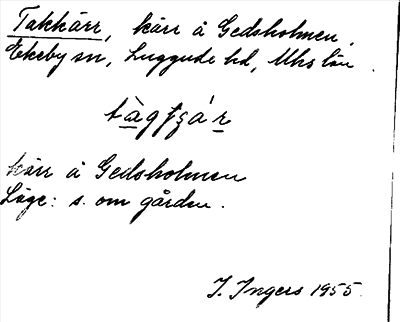 Takkärr, kärr å Gedsholmen,
Ekeby sn, Luggude hd, Mhs län.
kärr å Gedsholmen
Läge: s. om gården.
I. Ingers 1955.